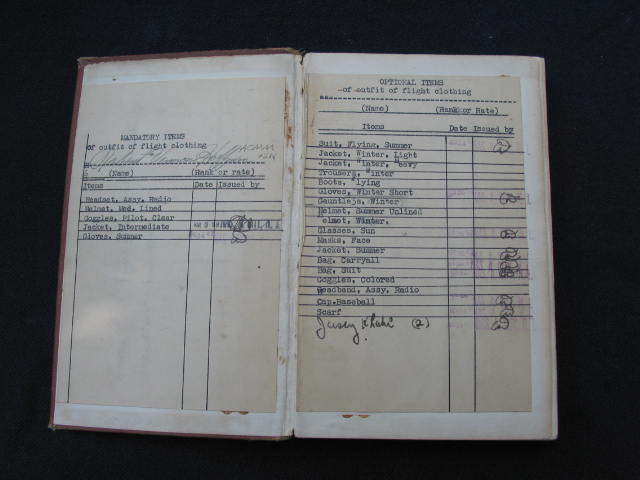 MANDATORY ITEMS
of outfit of flight clothing
(Name) (Rank or rate)
Items Date Issued by
Headset, Assy. Radio
Helmet, Med. Lined
Goggles, Pilot, Clear
Jacket, Intermediate
Gloves, Summer
OPTIONAL ITEMS
of outfit of flight clothing
(Name) (Rank or Rate)
Items Date Issued by
Suit, Flying, Summer
Jacket, Winter, Light
Jacket, "inter, "eavy
Trousers, "inter
Boots, "lying
Gloves, Winter Short
Gauntlets, Winter
Helmet, Summer Unlined
elmet, Winter.
Glasses, Sun
Masks, Face
Jacket, Summer
Bag, Carryall
Bag, Suit
Goggles, Colored
Headband, Assy. Radio
Cap, Baseball
Scarf
Khaki (2)